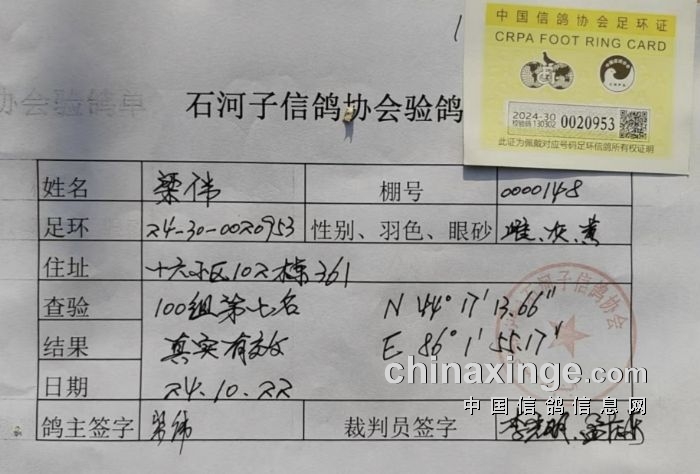 中国信鸽协会足环证
CRPA FOOT RING CARD
2024-30
校验码 130302
0020953
此证为佩戴对应号码足环信鸽所有权证明
石河子信鸽协会验鸽
姓名 梁伟 棚号 0000148
足环 24-30-0020953 性别、羽色、眼砂 雌、灰、黄
住址 十六小区102栋361
查验 100组第七名 N 44° 17′ 13.66″
结果 真实有效 E 86° 1′ 55.17″
日期 24.10.22
鸽主签字 梁伟 裁判员签字
石河子信鸽协会
chinaxinge.com
中国信鸽信息网